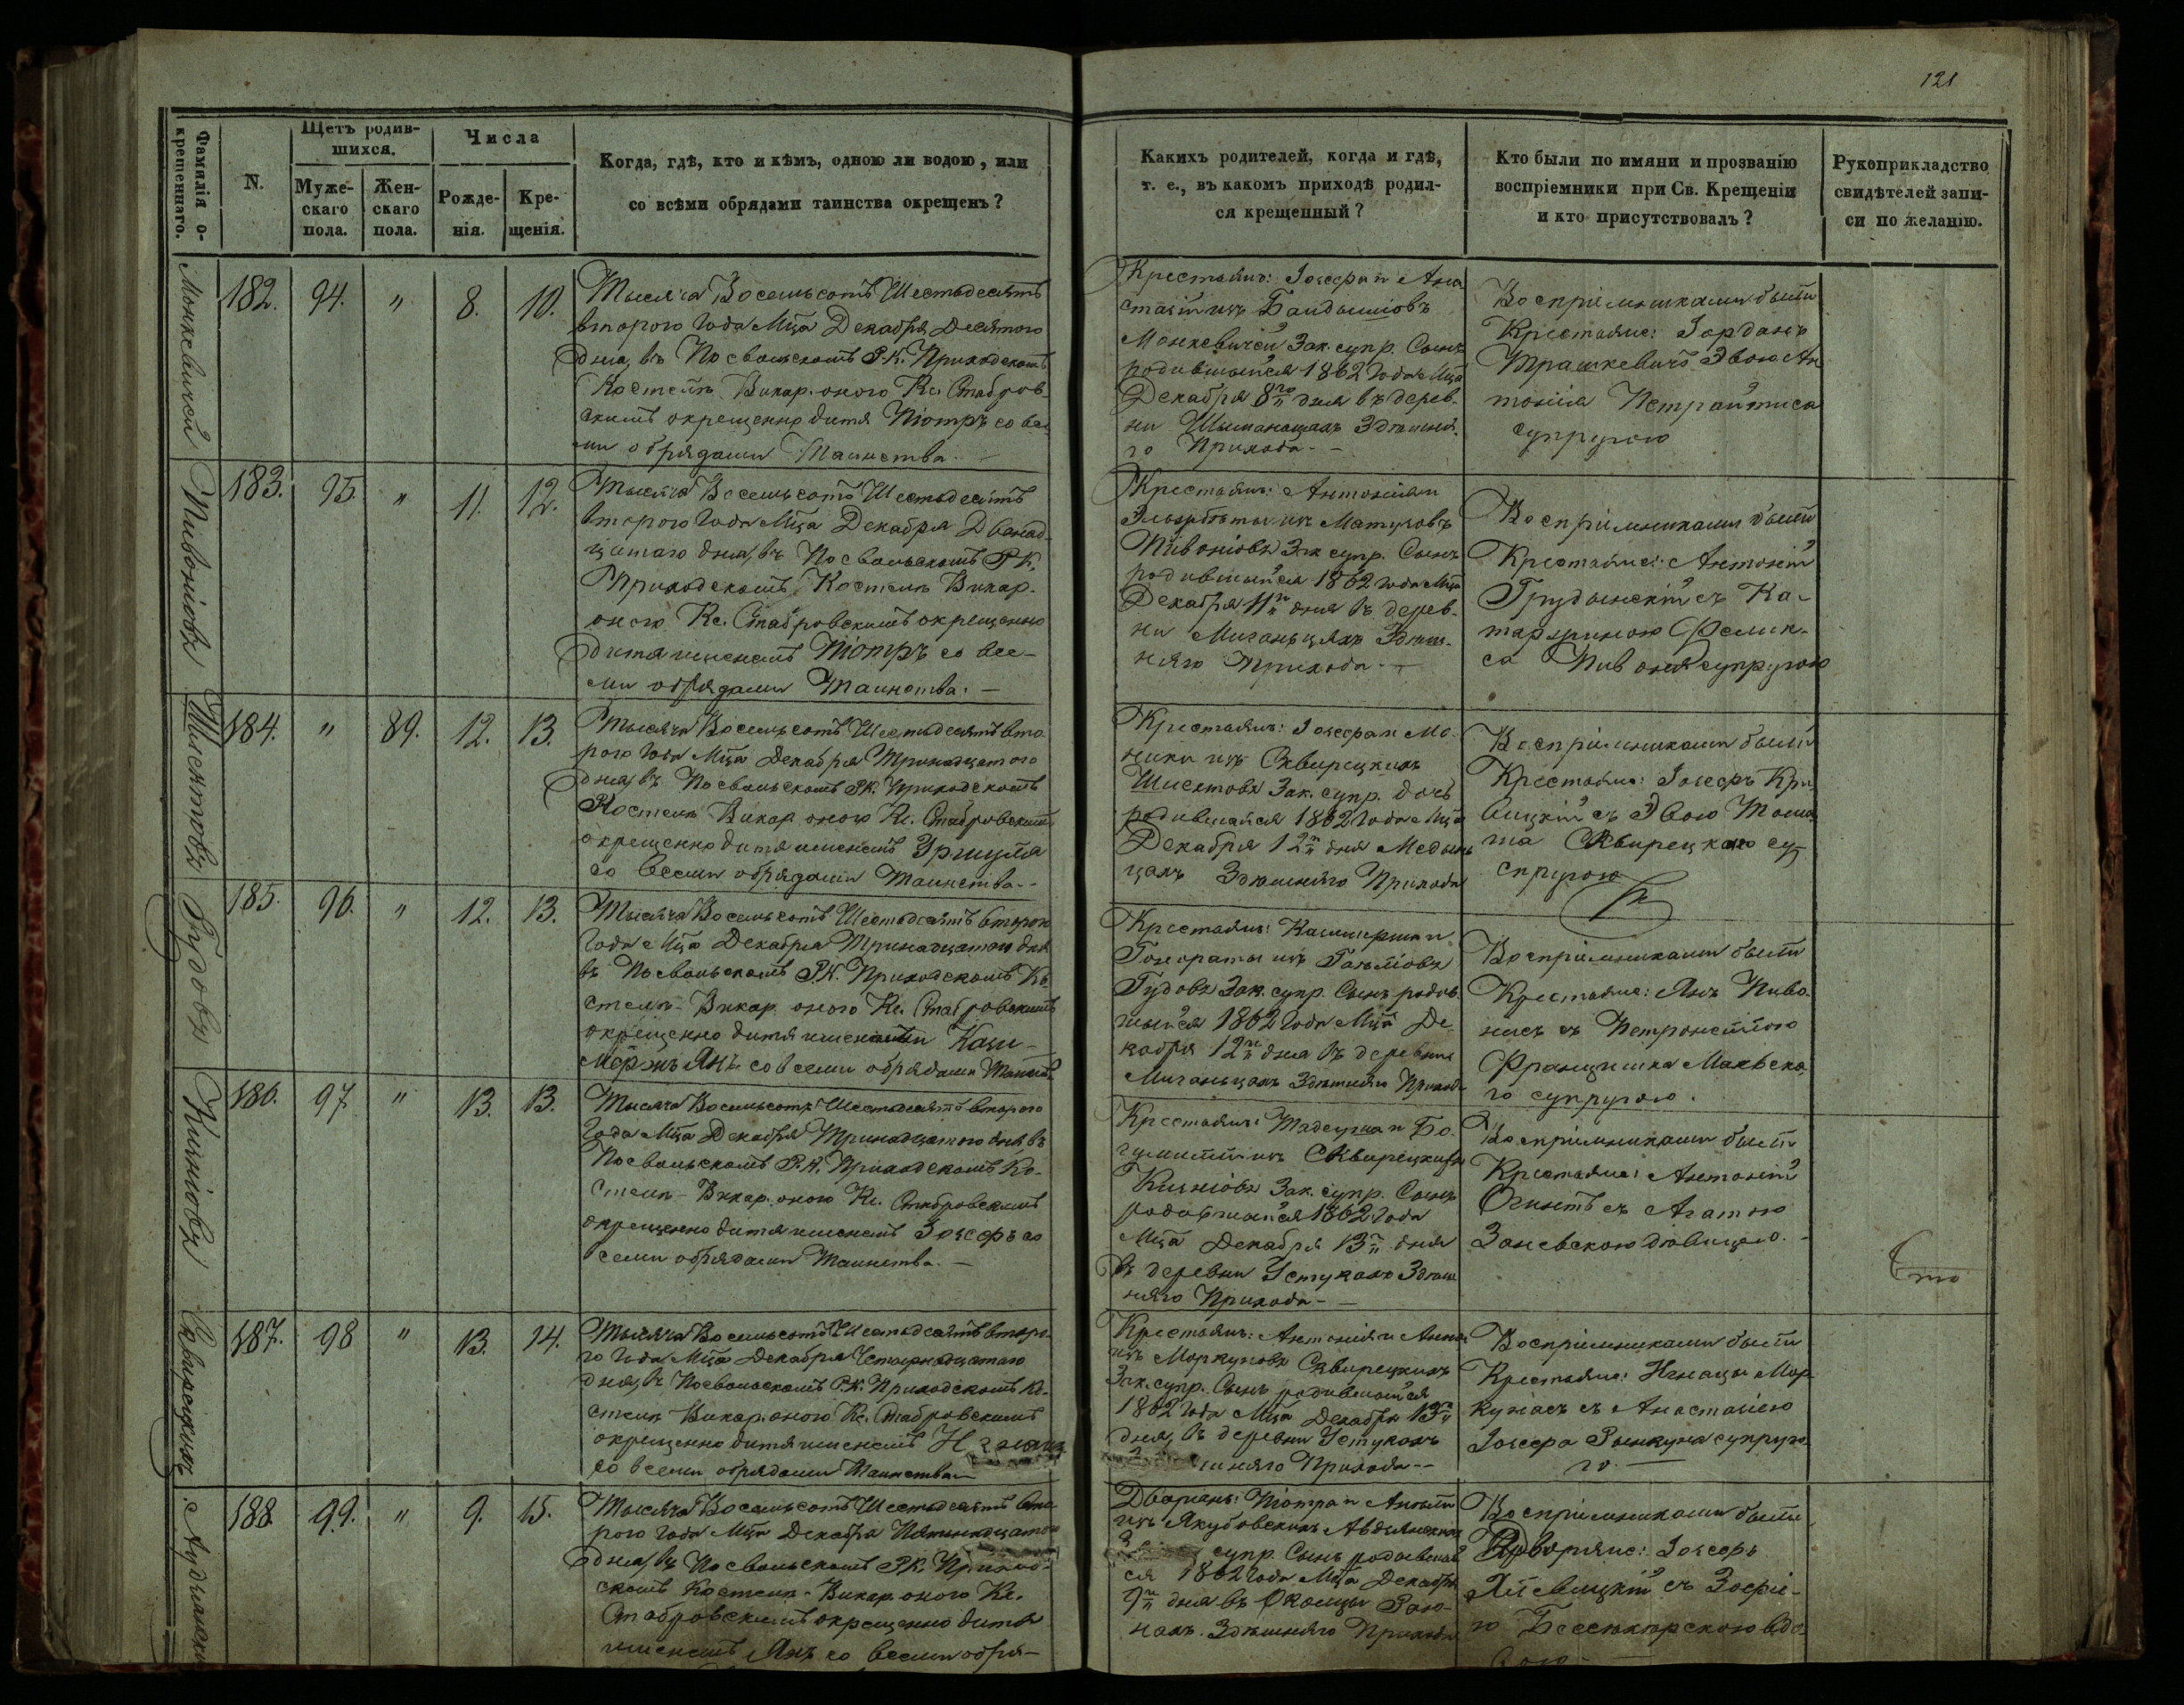 121
Фамилія о-
крещеннаго.
N.
Щетъ родив-
шихся.
Муже-
скаго
пола.
Жен-
скаго
пола.
Числа
Рожде-
нія.
Кре-
щенія.
Когда, гдѣ, кто и кѣмъ, одною ли водою, или
со всѣми обрядами таинства окрещенъ?
Какихъ родителей, когда и гдѣ,
т. е., въ какомъ приходѣ родил-
ся крещенный?
Кто были по имяни и прозванію
воспріемники при Св. Крещеніи
и кто присутствовалъ?
Рукоприкладство
свидѣтелей запи-
си по желанію.
Монкевичей
182. 94. " 8. 10.
Тысяча Восемьсотъ Шестьдесятъ
втораго Года Мца Декабря Десятого
дня, въ Посвольскомъ Р.К. Приходскомъ
Костелѣ Викар. оного Кс. Стабров-
скимъ окрещенно дитя Піотръ со все-
ми обрядами Таинства. —
Крестьянъ: Іосефа и Ана
стазіи изъ
Монкевичей Зак. супр. Сынъ
родившыйся 1862 Года Мца
Декабря 8го дня въ дерев-
ни Здѣшня-
го Прихода. —
Воспріемниками были
Крестьяне: Іорданъ
Трашкевичъ Эвою Ан
тонія Петрайтиса
супругою
Пивоніовъ
183. 95. " 11. 12.
Тысяча Восемьсотъ Шестьдесятъ
втораго Года Мца Декабря Двенад-
цатаго дня, въ Посвольскомъ Р.К.
Приходскомъ Костелѣ Викар.
оного Кс. Стабровскимъ окрещенно
дитя именемъ Піотръ со все-
ми обрядами Таинства. —
Крестьянъ: Антонія и
Эльзбѣты изъ Матусовъ
Пивоніовъ Зак супр. Сынъ
родившыйся 1862 года Мца
Декабря 11го дня въ дерев-
ни Миганьцяхъ Здѣш-
няго Прихода. —
Воспріемниками были
Крестьяне: Антоній
Грудзинскій съ Ка-
таржиною Феликса
са Пивоня супругою
Шиентовъ
184. " 89. 12. 13.
Тысяча Восемьсотъ Шестьдесятъ вто
рого Года Мца Декабря Тринадцатого
дня, въ Посвольскомъ Р.К. Приходскомъ
Костелѣ Викар. оного Кс. Стабровскимъ
окрещенно дитя именемъ
со всеми обрядами Таинства. —
Крестьянъ: Іосефа и Мо-
ники изъ Сквирецкихъ
Шиентовъ Зак. супр. дочь
родившаяся 1862 Года Мца
Декабря 12го дня
цахъ Здѣшняго Прихода
Воспріемниками были
Крестьяне: Іосефъ Кри-
вицкій съ Эвою Тома-
ша Сквирецкаго су-
пругою
Гудовъ
185. 96. " 12. 13.
Тысяча Восемьсотъ Шестьдесятъ второго
Года Мца Декабря Тринадцатого дня
въ Посвольскомъ Р.К. Приходскомъ Ко-
стелѣ Викар. оного Кс. Стабровскимъ
окрещенно дитя именами Кази-
мержъ Янъ со всеми обрядами Таинств.
Крестьянъ: Казимержа и
Гонораты изъ
Гудовъ Зак. супр. Сынъ родив-
шыйся 1862 Года Мца Де
кабря 12го дня въ деревни
Миганьцахъ Здѣшняго Прихода
Воспріемниками были
Крестьяне: Янъ Пиво-
насъ съ Петронеллою
Францишка Маевска-
го супругою.
Кишіовъ
186. 97. " 13. 13.
Тысяча Восемьсотъ Шестьдесятъ второго
Года Мца Декабря Тринадцатого дня въ
Посвольскомъ Р.К. Приходскомъ Ко-
стелѣ Викар. оного Кс. Стабровскимъ
окрещенно дитя именемъ Іосефъ со
всеми обрядами Таинства. —
Крестьянъ: Тадеуша и Бо-
гумилы изъ Сквирецкихъ
Зак. супр. Сынъ
родившыйся 1862 Года
Мца Декабря 13го дня
въ деревни Устукахъ Здѣш
няго Прихода —
Воспріемниками были
Крестьяне: Антоній
съ Агатою
Заневскою дѣвицею. —
Сквирецкихъ
187. 98 " 13. 14.
Тысяча Восемьсотъ Шестьдесятъ второ-
го Года Мца Декабря Четырнадцатаго
дня, въ Посвольскомъ Р.К. Приходскомъ Ко-
стелѣ Викар. оного Кс. Стабровскимъ
окрещенно дитя именемъ
со всеми обрядами Таинства —
Крестьянъ: Антонія и Анны
изъ Моркуновъ Сквирецкихъ
Зак. супр. Сынъ родившыйся
1862 Года Мца Декабря 13го
дня, въ деревни Устукахъ
шняго Прихода. —
Воспріемниками были
Крестьяне: Игнацы Мор-
кунасъ съ Анастазіею
Іосефа Рынкуна супруго-
ю. —
188. 99. " 9. 15.
Тысяча Восемьсотъ Шестьдесятъ вто
рого Года Мца Декабря Пятнадцатого
дня, въ Посвольскомъ Р.К. Приход-
скомъ Костелѣ Викар. оного Кс.
Стабровскимъ окрещенно дитя
именемъ Янъ со всеми обря-
Дворянъ: Піотра и Анѣли
изъ Якубовскихъ
супр. Сынъ родившый
ся 1862 Года Мца Декабря
9го дня въ Околицы
нахъ Здѣшняго Прихода
Воспріемниками были
Дворяне: Іосефъ
съ Зофіе-
ю вдо-
вою.